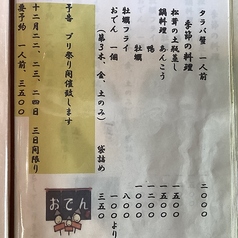 季節の料理
タラバ蟹 一人前 二〇〇〇
松茸の土瓶蒸し 一五〇〇
鍋料理 あんこう 一五〇〇
鴨 一二〇〇
牡蠣 一〇〇〇
牡蠣フライ 八〇〇
おでん 一個 一〇〇より
(第3木、金、土のみ) 袋詰め 三五〇
予告 ブリ祭り開催致します
十二月二二、二三、二四日 三日間限り
要予約 一人前、三五〇〇
おでん